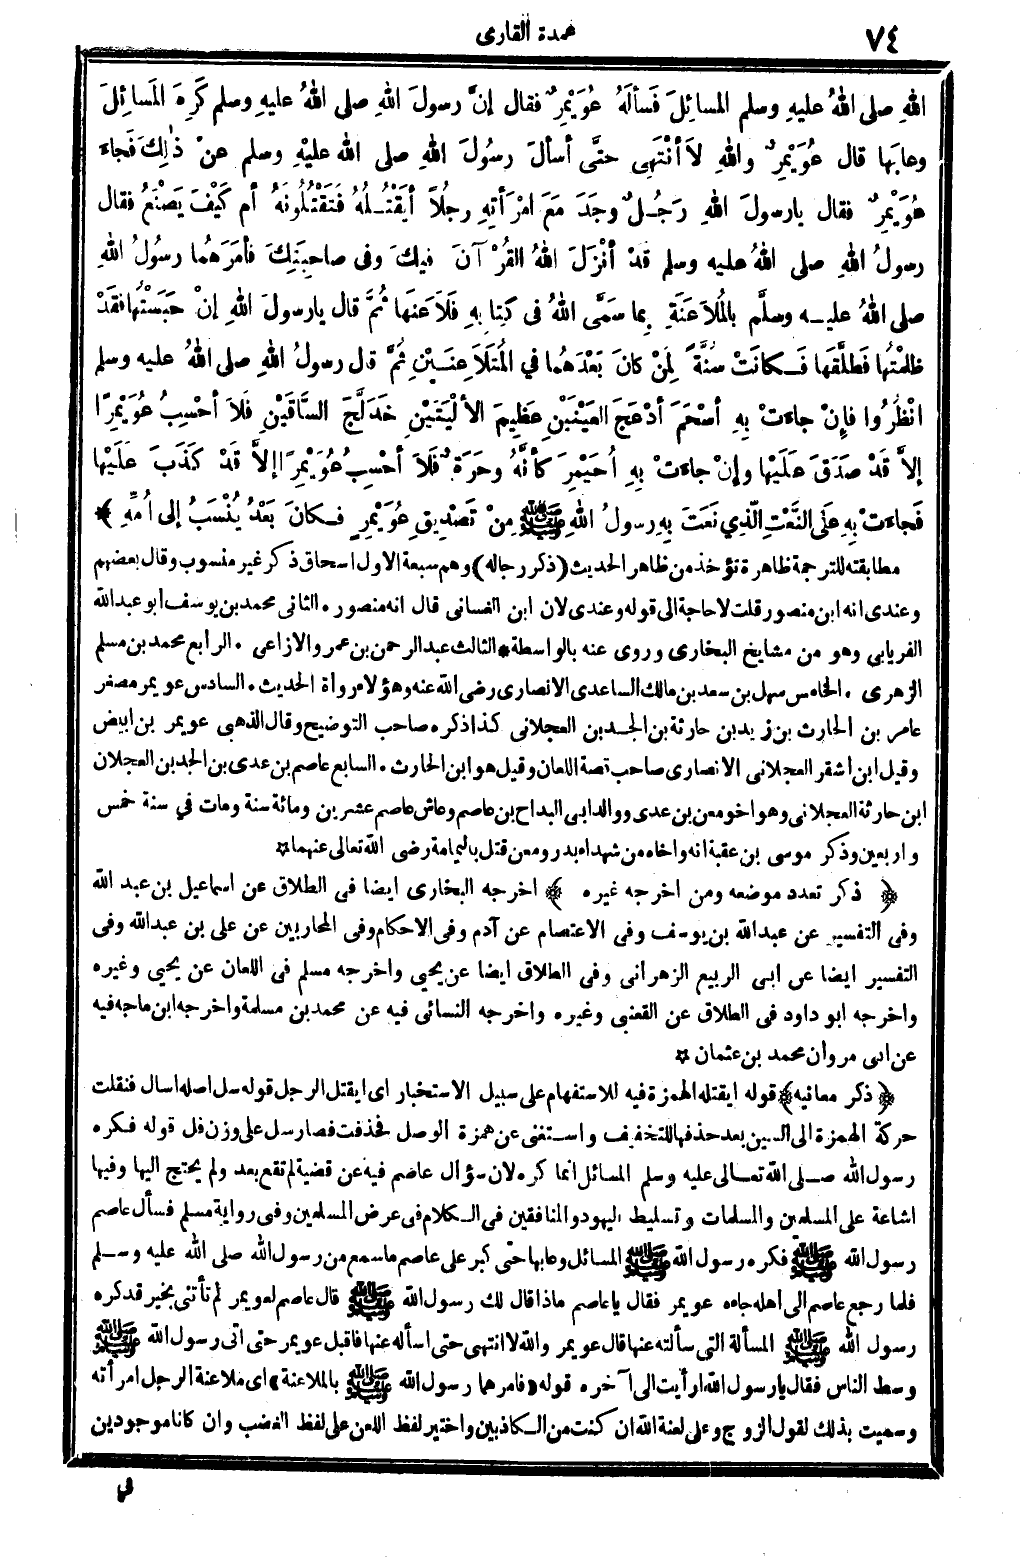 ٧٤
عمدة القارى
اللهِ صلى اللهُ عليهِ وسلم المسائِلَ فَسألَهُ عُوَيْمِرٌ فقال إنَّ رسولَ اللهِ صلى اللهُ عليهِ وسلم كَرِهَ المَسائِلَ
وعابَها قال عُوَيْمِرٌ واللهِ لاَ أنْتَهِى حتَّى أسألَ رسُولَ اللهِ صلى الله عليْهِ وسلم عنْ ذٰلِكَ فَجاءَ
عُوَيْمِرٌ فقال يارسولَ اللهِ رَجُلٌ وجَدَ مَعَ امْرَأتِهِ رجُلاً أيَقْتُلُهُ فَتَقْتُلُونَهُ أم كَيْفَ يَصْنَعُ فقال
رسولُ اللهِ صلى اللهُ عليه وسلم قدْ أنْزَلَ اللهُ القُرْآنَ فيكَ وفى صاحِبَتِكَ فأمَرَهُما رسُولُ اللهِ
صلى اللهُ عليه وسلَّم بالمُلاَعَنَةِ بِما سَمَّى اللهُ فى كِتابِهِ فَلاَعَنَها ثُمَّ قال يارسولَ اللهِ إنْ حَبَسْتُها فقَدْ
ظلمْتُها فَطلَّقَها فَكانَتْ سُنَّةً لِمَنْ كانَ بَعْدَهُما فى المُتَلاَعِنَيْنِ ثُمَّ قال رسولُ اللهِ صلى اللهُ عليه وسلم
انْظُرُوا فإنْ جاءتْ بِهِ أسْحَمَ أدْعَجَ العَيْنَيْنِ عَظِيمَ الألْيَتَيْنِ خَدَلَّجَ السَّاقَيْنِ فلاَ أحْسِبُ عُوَيْمِرًا
إلاَّ قَدْ صدَقَ عَلَيْها وإنْ جاءتْ بِهِ أُحَيْمِرَ كأنَّهُ وحَرَةٌ فَلاَ أحْسِبُ عُوَيْمِرًا إلاَّ قدْ كَذَبَ عَلَيْها
فَجاءتْ بِهِ علَى النَّعْتِ الَّذِي نَعَتَ بِهِ رسولُ اللهِ ﷺ مِنْ تَصْدِيقِ عُوَيْمِرٍ فَكانَ بَعْدُ يُنْسَبُ إلى أُمِّهِ ﴾
مطابقته للترجمة ظاهرة تؤخذ من ظاهر الحديث (ذكر رجاله) وهم سبعة الاول اسحاق ذكر غير منسوب وقال بعضهم
وعندى انه ابن منصور قلت لاحاجة الى قوله وعندى لان ابن الغسانى قال انه منصور . الثانى محمد بن يوسف أبو عبدالله
الفريابى وهو من مشايخ البخارى وروى عنه بالواسطة * الثالث عبد الرحمن بن عمرو الازاعى . الرابع محمد بن مسلم
الزهرى . الخامس سهل بن سعد بن مالك الساعدى الانصارى رضى الله عنه وهؤلاء رواة الحديث . السادس عويمر مصغر
عامر بن الحارث بن زيد بن حارثة بن الجد بن العجلانى كذا ذكره صاحب التوضيح وقال الذهبى عويمر بن ابيض
وقيل ابن اشقر العجلانى الانصارى صاحب قصة اللعان وقيل هو ابن الحارث . السابع عاصم بن عدى بن الجد بن العجلان
ابن حارثة العجلانى وهو اخو معن بن عدى ووالد ابى البداح بن عاصم وعاش عاصم عشرين ومائة سنة ومات في سنة خمس
واربعين وذكر موسى بن عقبة انه واخاه من شهداء بدر ومعن قتل باليمامة رضى الله تعالى عنهما ✩
﴿ ذكر تعدد موضعه ومن اخرجه غيره ﴾ اخرجه البخارى ايضا فى الطلاق عن اسماعيل بن عبد الله
وفى التفسير عن عبدالله بن يوسف وفى الاعتصام عن آدم وفى الاحكام وفى المحاربين عن على بن عبدالله وفى
التفسير ايضا عن ابى الربيع الزهرانى وفى الطلاق ايضا عن يحيى واخرجه مسلم فى اللعان عن يحيى وغيره
واخرجه ابو داود فى الطلاق عن القعنبى وغيره واخرجه النسائى فيه عن محمد بن مسلمة واخرجه ابن ماجه فيه
عن ابى مروان محمد بن عثمان ✩
﴿ ذكر معانيه ﴾ قوله ايقتله الهمزة فيه للاستفهام على سبيل الاستخبار اى ايقتل الرجل قوله سل اصله اسال فنقلت
حركة الهمزة الى السين بعد حذفها للتخفيف واستغنى عن همزة الوصل فحذفت فصار سل على وزن فل قوله فكره
رسول الله صلى الله تعالى عليه وسلم المسائل انما كره لان سؤال عاصم فيه عن قضية لم تقع بعد ولم يحتج اليها وفيها
اشاعة على المسلمين والمسلمات وتسليط اليهود والمنافقين فى الكلام فى عرض المسلمين وفى رواية مسلم فسأل عاصم
رسول الله ﷺ فكره رسول الله ﷺ المسائل وعابها حتى كبر على عاصم ما سمع من رسول الله صلى الله عليه وسلم
فلما رجع عاصم الى أهله جاءه عويمر فقال ياعاصم ماذا قال لك رسول الله ﷺ قال عاصم لعويمر لم تأتنى بخير قد كره
رسول الله ﷺ المسألة التى سألته عنها قال عويمر والله لا انتهى حتى اسأله عنها فاقبل عويمر حتى اتى رسول الله ﷺ
وسط الناس فقال يارسول الله ارأيت الى آخره قوله «فامرهما رسول الله ﷺ بالملاعنة» اى ملاعنة الرجل امرأته
وسميت بذلك لقول الزوج وعلى لعنة الله ان كنت من الكاذبين واختير لفظ اللعن على لفظ الغضب وان كانا موجودين
فى